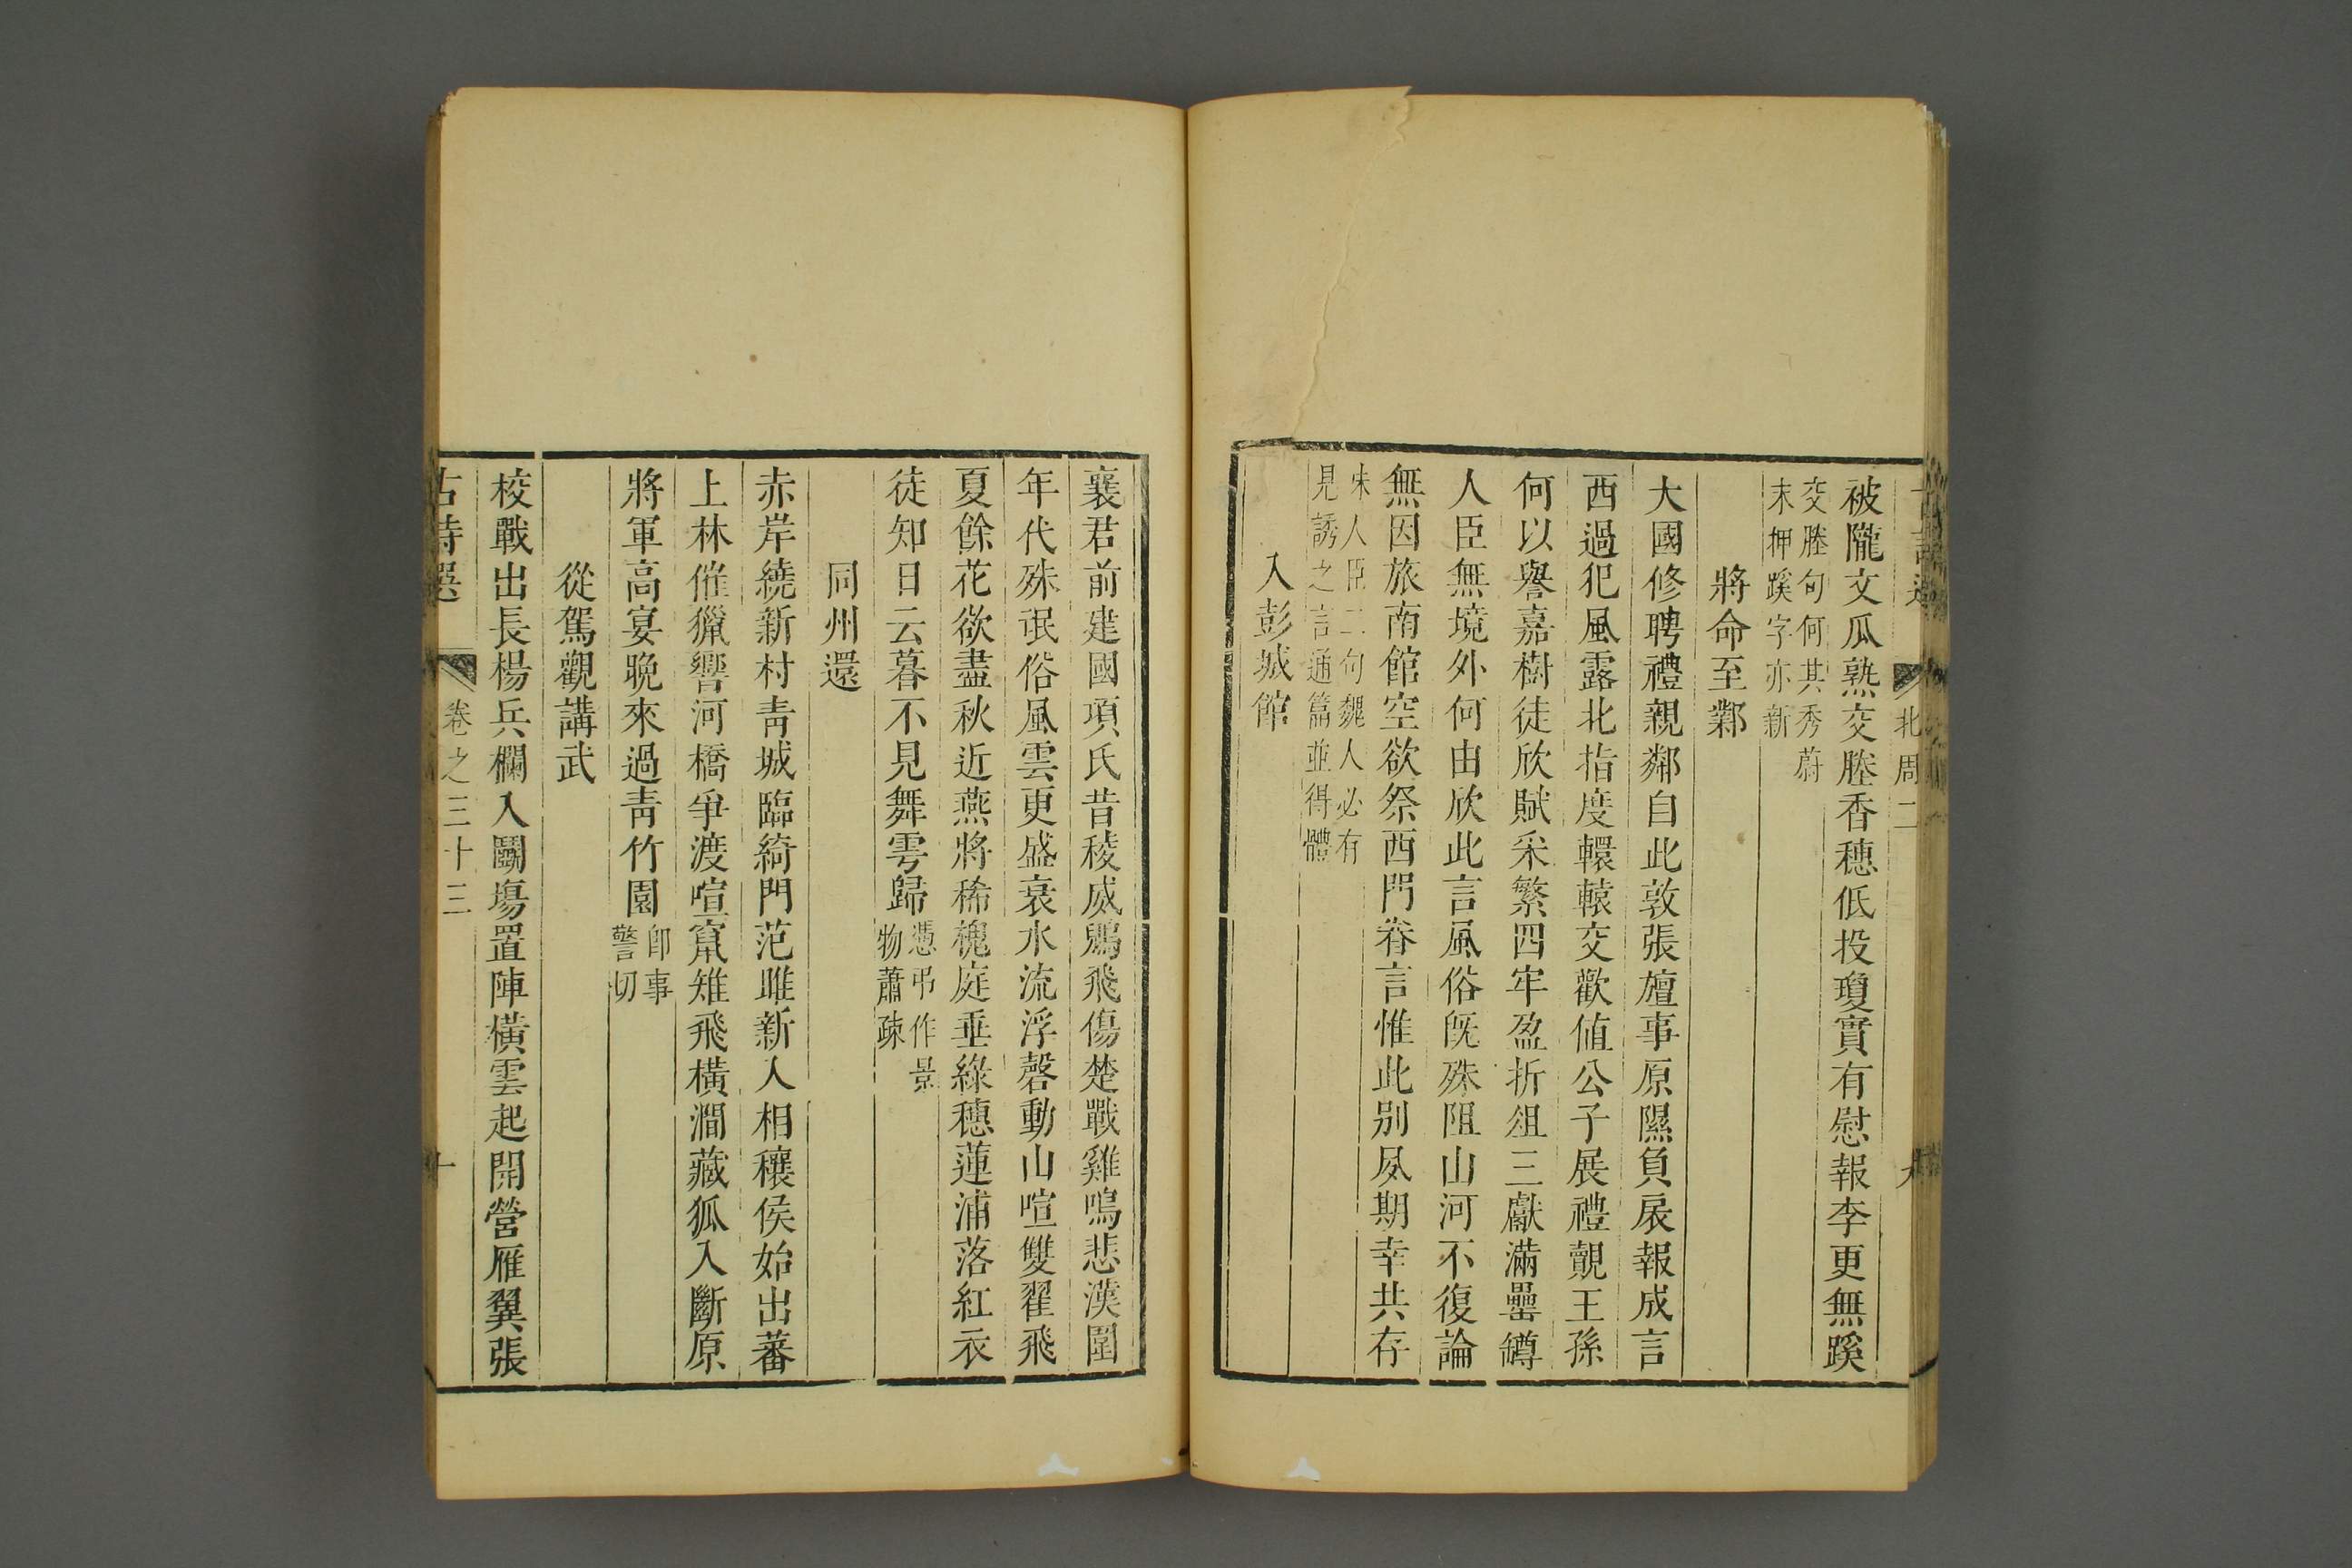 北周二
被隴文瓜熟交塍香穗低投瓊實有慰報李更無蹊
交塍句何其秀蔚
末押蹊字亦新
將命至鄴
大國修聘禮親鄰自此敦張旜事原隰負扆報成言
西過犯風露北指度轘轅交歡値公子展禮覿王孫
何以譽嘉樹徒欣賦采繁四牢盈折俎三獻滿罍罇
人臣無境外何由欣此言風俗旣殊阻山河不復論
無因旅南館空欲祭西門眷言惟此別夙期幸共存
味人臣二句魏人必有
見誘之言通篇並得體
入彭城館
襄君前建國項氏昔稜威鶂飛傷楚戰雞鳴悲漢圍
年代殊氓俗風雲更盛衰水流浮磬動山喧雙翟飛
夏餘花欲盡秋近燕將稀槐庭垂綠穗蓮浦落紅衣
徒知日云暮不見舞雩歸
憑弔作景
物蕭疎
同州還
赤岸繞新村靑城臨綺門范雎新入相穰侯始出蕃
上林催獵響河橋爭渡喧竄雉飛橫澗藏狐入斷原
將軍高宴晚來過靑竹園
卽事
警切
從駕觀講武
校戰出長楊兵欄入鬭塲置陣橫雲起開營雁翼張
古詩選
卷之三十三
十